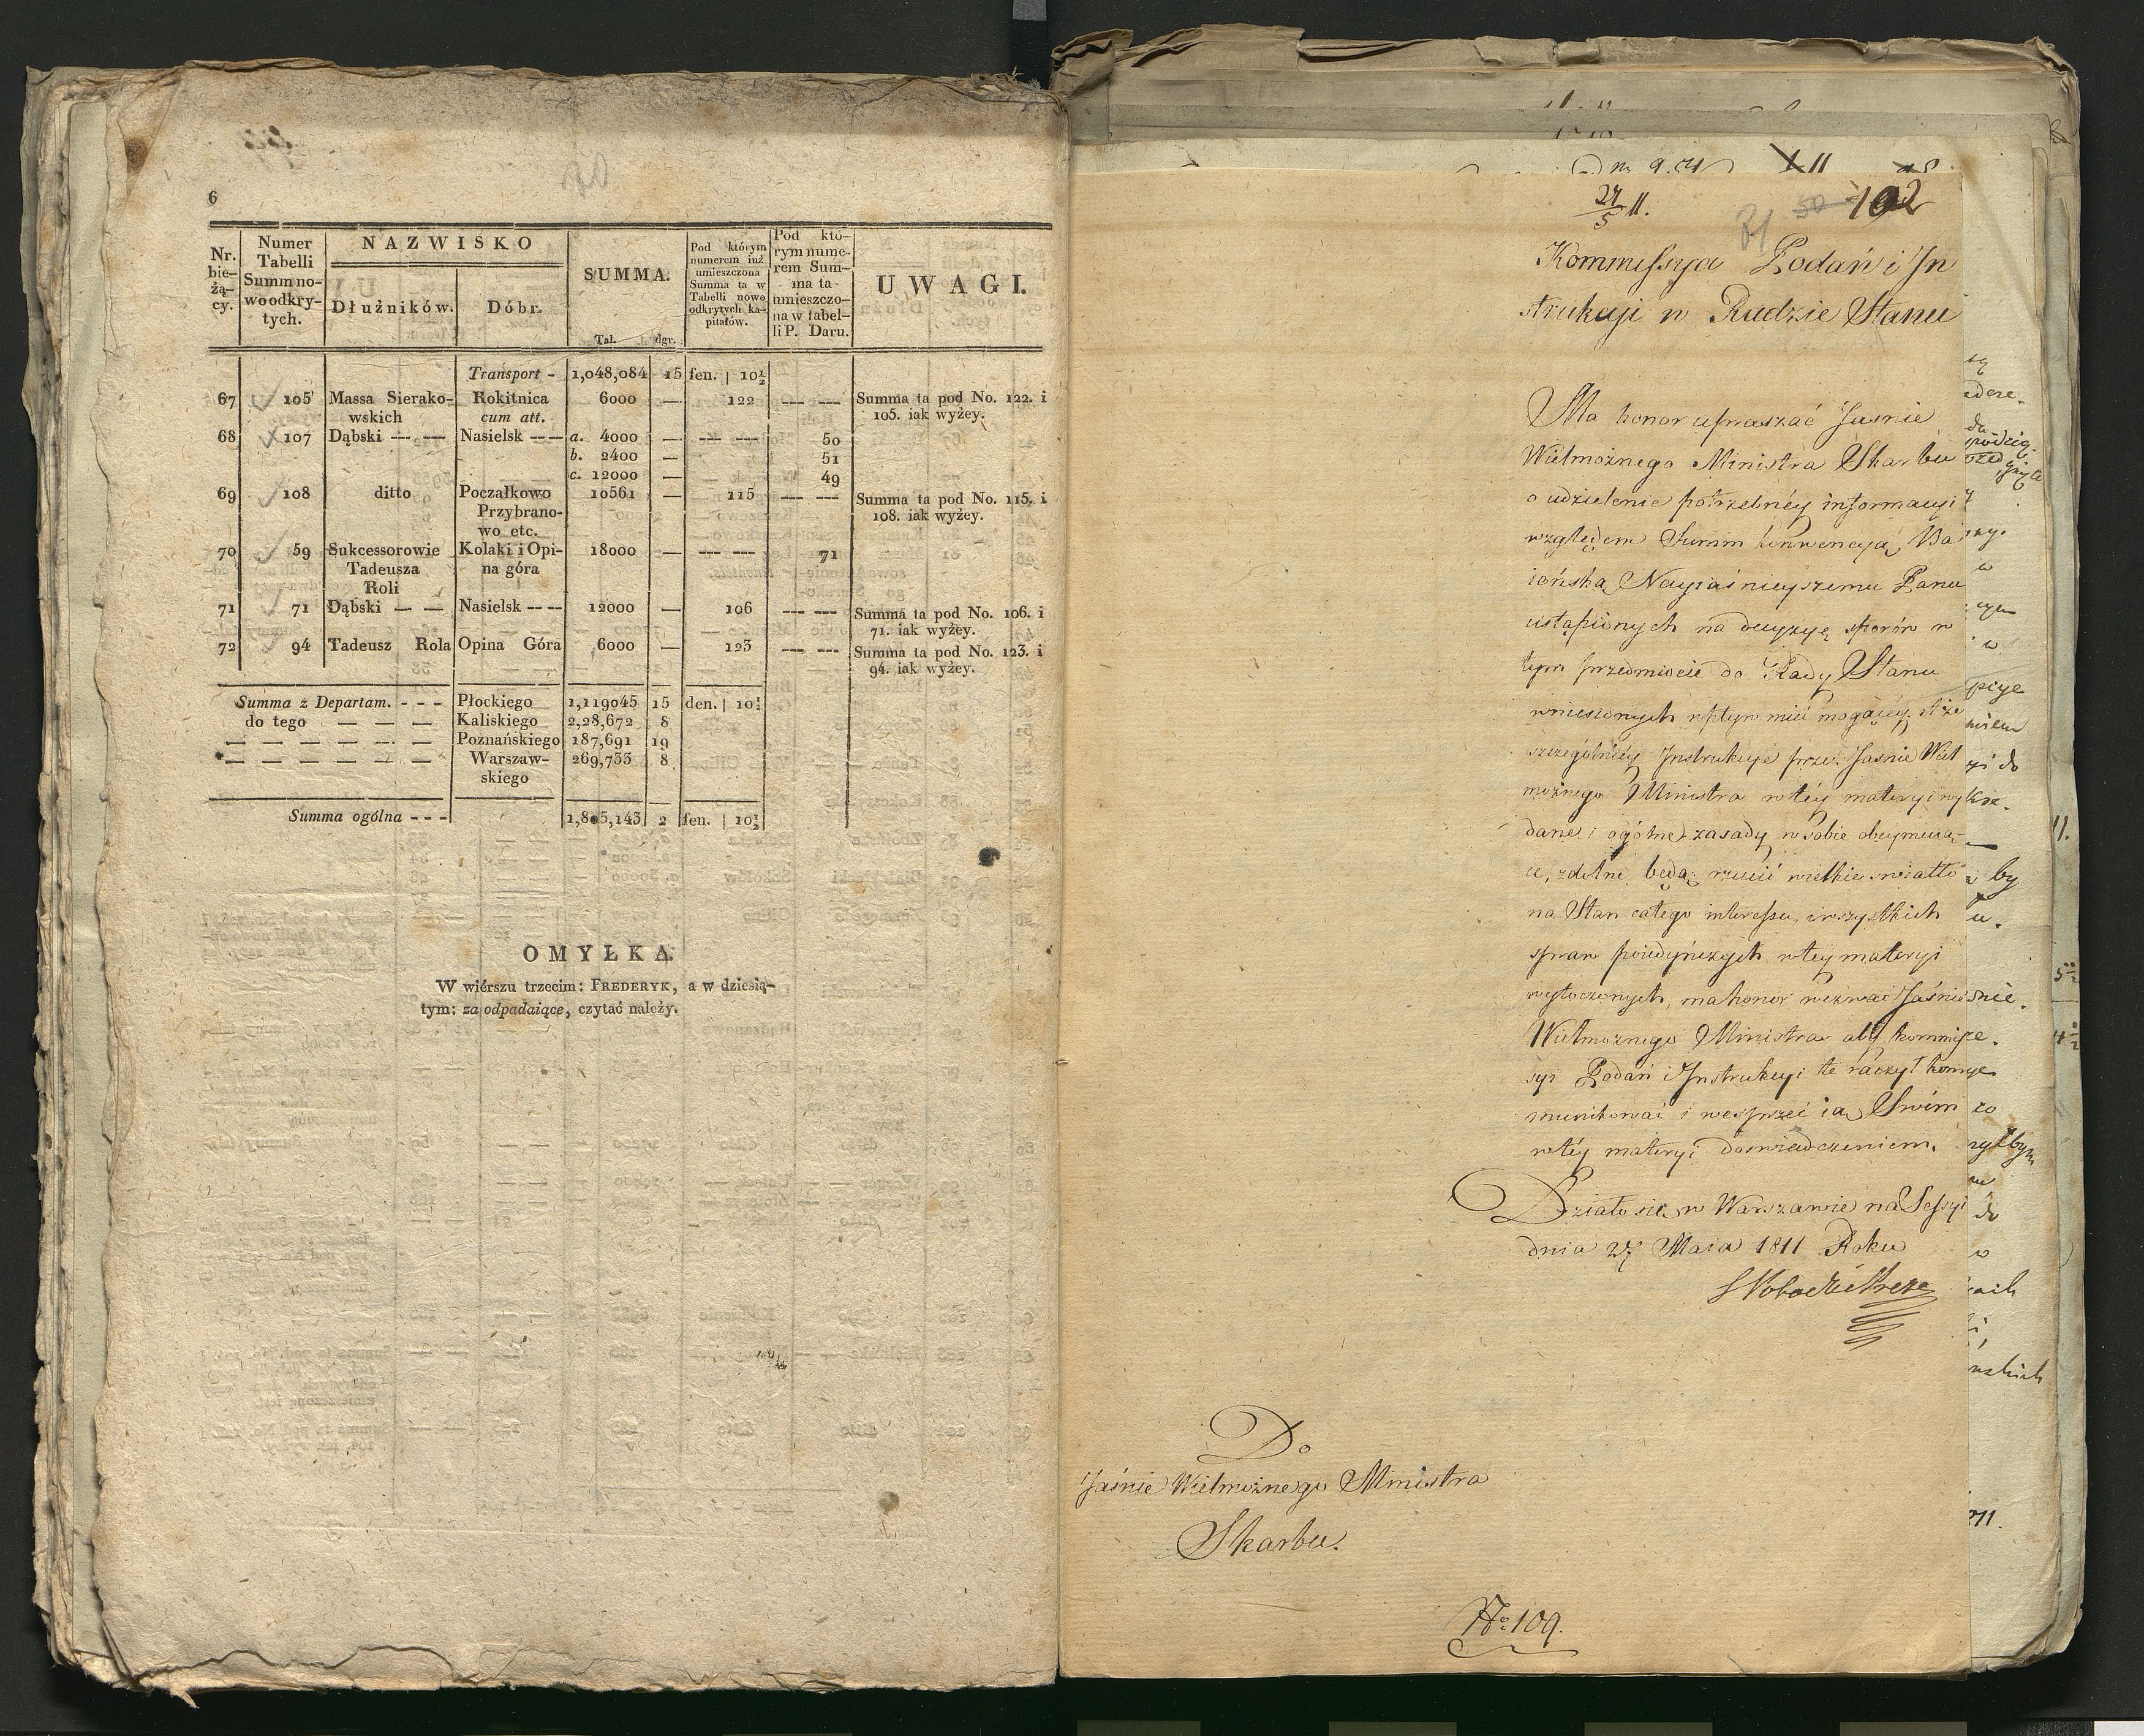 6
Nr. bieżący. | Numer Tabelli Summ nowoodkrytych. | NAZWISKO Dłużników. | Dóbr. | SUMMA. Tal. dgr. | Pod którym numerem iuż umieszczona Summa ta w Tabelli nowo odkrytych kapitałów. | Pod którym numerem Summa ta umieszczona w tabelli P. Daru. | UWAGI.
Transport - 1,048,084 15 fen. 10½
67 105 Massa Sierako- Rokitnica 6000 — 122 --- --- Summa ta pod No. 122. i
wskich cum att. 105. iak wyżey.
68 107 Dąbski --- --- Nasielsk --- -- a. 4000 — --- --- 50
b. 2400 — 51
c. 12000 — 49
69 108 ditto Poczałkowo 10561 — 115 --- --- Summa ta pod No. 115. i
Przybrano- 108. iak wyżey.
wo etc.
70 59 Sukcessorowie Kolaki i Opi- 18000 — --- --- 71
Tadeusza na góra
Roli
71 71 Dąbski — — Nasielsk -- -- 12000 — 106 --- --- Summa ta pod No. 106. i
71. iak wyżey.
72 94 Tadeusz Rola Opina Góra 6000 — 123 --- --- Summa ta pod No. 123. i
94. iak wyżey.
Summa z Departam. - - - Płockiego 1,119045 15 den. 10½
do tego — — — Kaliskiego 2,28,672 8
— — — — — — Poznańskiego 187,691 19
— — — — — — Warszaw- 269,733 8
skiego
Summa ogólna - - - 1,805,143 2 fen. 10½
OMYŁKA.
W wiérszu trzecim: FREDERYK, a w dziesią-
tym: za odpadaiące, czytać należy.
27/5 11.
102
Kommissya Podań i In
strukcji w Radzie Stanu
Ma honor upraszać Jaśnie
Wielmożnego Ministra Skarbu
o udzielenie potrzebnéy informacyi
względem Summ konwencyą Ba
iońską Nayiaśnieyszemu Panu
ustąpionych na decyzyę sporów w
tym przedmiocie do Rady Stanu
wniesionych wpływ mieć mogącey. A że
szczególniéy Instrukcye przez Jaśnie Wiel
możnego Ministra w téy materyi wy
dane i ogólne zasady w sobie obeymuią-
ce, zdolne będą rzucić wielkie swiatło
na Stan całego interessu, i wszystkich
spraw poiedyńczych w téy materyi
wytoczonych, ma honor wezwać Jaśnie
Wielmożnego Ministra aby kommis
syi Podań i Instrukcyi te raczył kom
munikować i wesprzeć ią Swém
w téy materyi doświadczeniem.
Działo się w Warszawie na Sessyi
dnia 27 Maia 1811 Roku
Do
Jaśnie Wielmożnego Ministra
Skarbu.
No. 109.